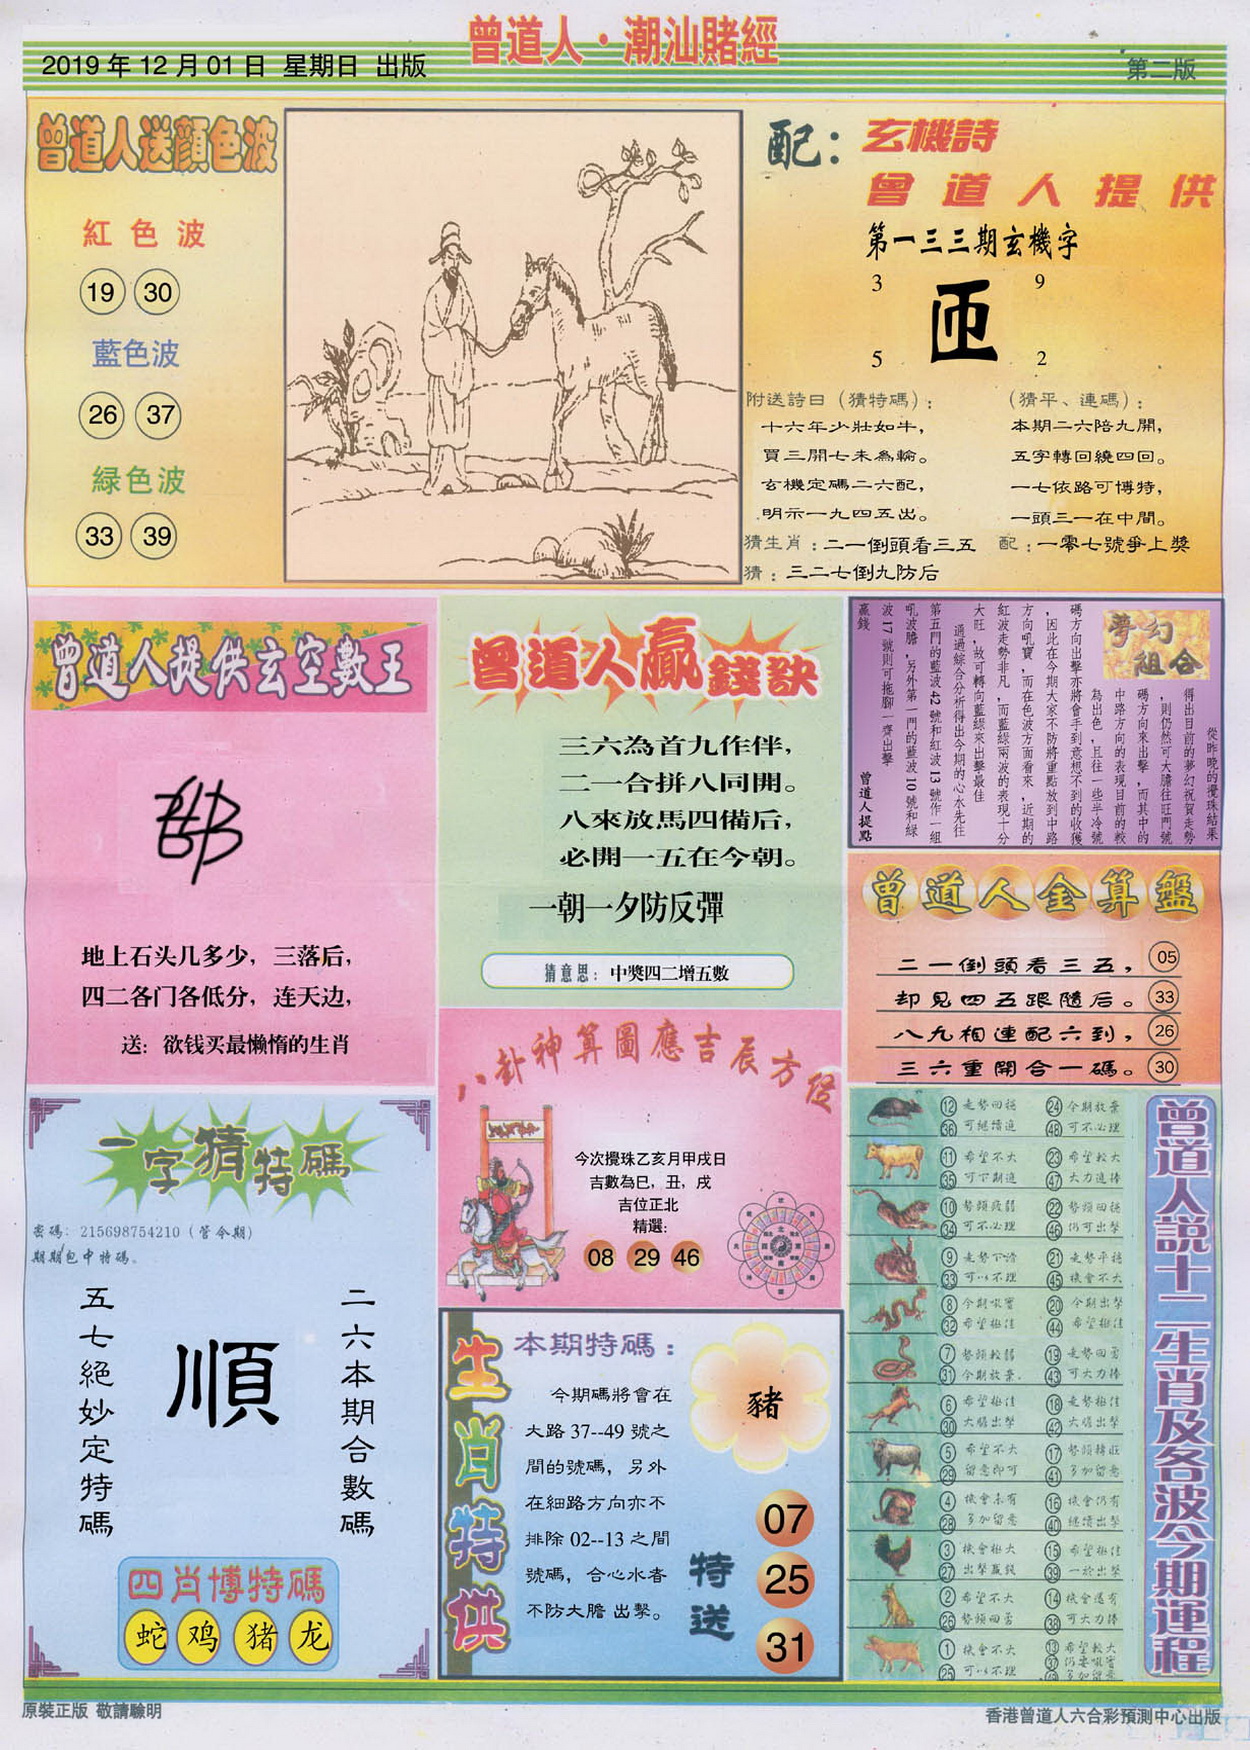 曾道人·潮汕賭經
2019年12月01日 星期日 出版
第二版
曾道人送顔色波
紅色波
19 30
藍色波
26 37
緑色波
33 39
配：玄機詩
曾道人提供
第一三三期玄機字
3 9
匝
5 2
附送詩曰（猜特碼）：
十六年少壯如牛，
買三開七未為輸。
玄機定碼二六配，
明示一九四五出。
（猜平、連碼）：
本期二六陪九開，
五字轉回繞四回。
一七依路可博特，
一頭三一在中間。
猜生肖：二一倒頭看三五
配：一零七號爭上獎
猜：三二七倒九防后
曾道人提供玄空數王
地上石头几多少，三落后，
四二各门各低分，连天边，
送：欲钱买最懒惰的生肖
曾道人贏錢訣
三六為首九作伴，
二一合拼八同開。
八來放馬四備后，
必開一五在今朝。
一朝一夕防反彈
猜意思：中獎四二增五數
夢幻組合
從昨晚的攪珠結果
得出目前的夢幻祝賀走勢
，則仍然可大膽往旺門號
碼方向來出擊，而其中的
中路方向的表現目前的較
為出色，且往一些半冷號
碼方向出擊亦將會手到意想不到的收獲
，因此在今期大家不防將重點放到中路
方向吼寶，而在色波方面看來，近期的
紅波走勢非凡，而藍綠兩波的表現十分
大旺，故可轉向藍綠來出擊最佳
通過綜合分析得出今期的心水先往
第五門的藍波42號和紅波13號作一組
吼波膽，另外第一門的藍波10號和綠
波17號則可拖腳一齊出擊
贏錢
曾道人提點
曾道人金算盤
二一倒頭看三五，05
却見四五跟隨后。33
八九相連配六到，26
三六重開合一碼。30
一字猜特碼
密碼：215698754210（管令期）
期期包中特碼。
五七絕妙定特碼
順
二六本期合數碼
四肖博特碼
蛇 鸡 猪 龙
八卦神算圖應吉辰方位
今次攪珠乙亥月甲戌日
吉數為巳，丑，戌
吉位正北
精選：
08 29 46
生肖特供
本期特碼：
今期碼將會在
大路37--49號之
間的號碼，另外
在細路方向亦不
排除02--13之間
號碼，合心水者
不防大膽出擊。
豬
特送
07
25
31
曾道人説十二生肖及各波今期運程
12 走勢回穩 24 今期放棄
36 可繼續追 48 可不必理
11 希望不大 23 希望較大
35 可下期追 47 大力追捧
10 勢頭疲弱 22 勢頭回穩
34 可不必理 46 仍可出擊
9 走勢下滑 21 走勢平穩
33 可以不理 45 機會不大
8 今期吼實 20 今期出擊
32 希望極佳 44 希望極佳
7 勢頭較弱 19 走勢回勇
31 今期放棄. 43 可大力捧
6 希望極佳 18 走勢極佳
30 大膽出擊 42 大膽出擊
5 希望不大 17 勢頭轉旺
29 留意即可 41 多加留意
4 機會未有 16 機會仍有
28 多加留意 40 繼續出擊
3 機會極大 15 希望極佳
27 出擊贏錢 39 一於出擊
2 希望不大 14 機會還有
26 勢頭回勇 38 可大力捧
1 機會不大 13 希望較大
25 可以不理 37 仍要吼實
49 多加留意
原裝正版 敬請驗明
香港曾道人六合彩預測中心出版